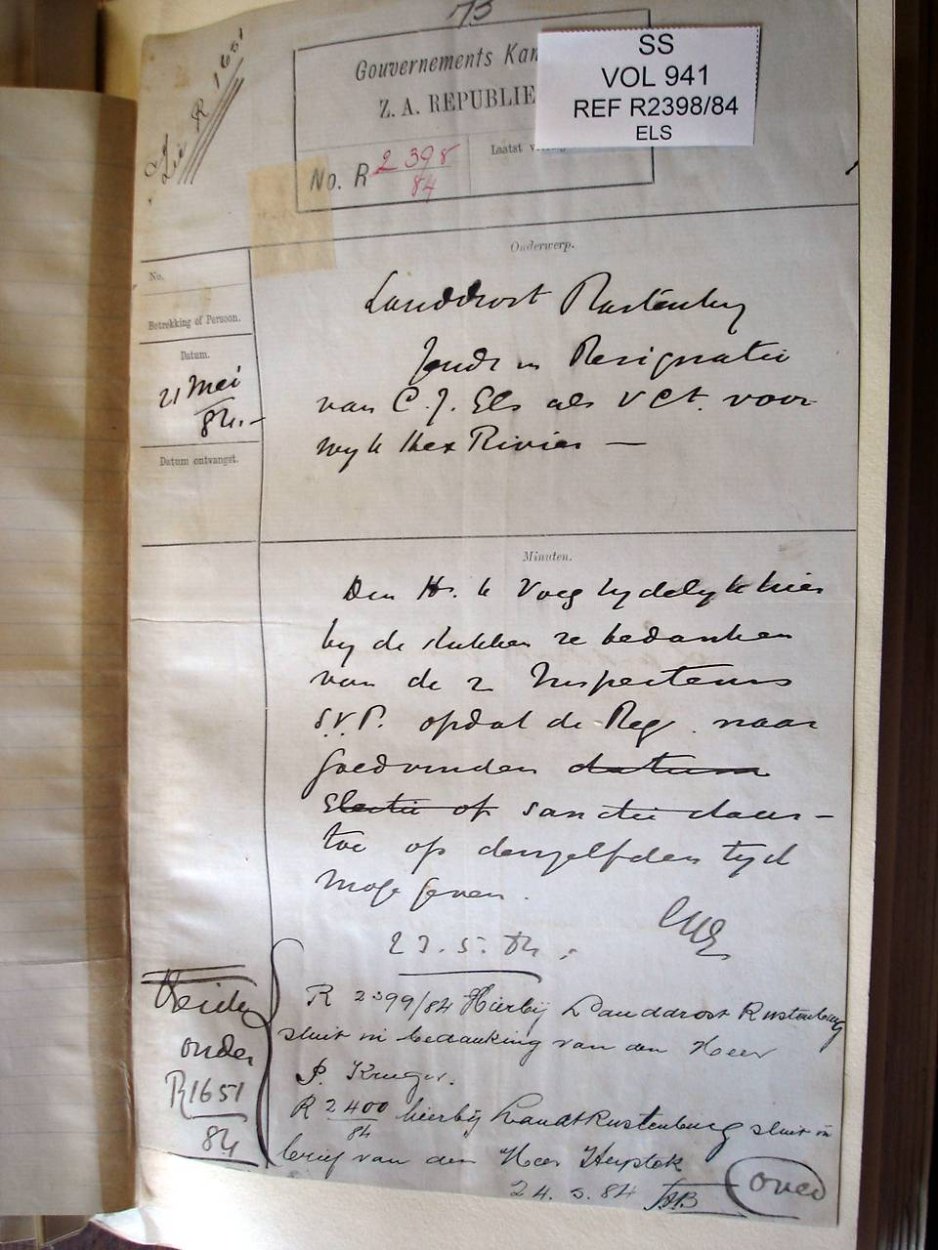 73
Zie R 1651
Gouvernements Kan
Z. A. REPUBLIE
No. R 2398/84
Laatst
SS
VOL 941
REF R2398/84
ELS
No.
Betrekking of Persoon.
Datum.
21 Mei
84.-
Datum ontvangst.
Onderwerp.
Landdrost Rustenburg
Zendt in Resignatie
van C. J. Els als VCt. voor
wyk Hex Rivier —
Minuten.
Den Hr. k Voeg tydelyk hier
by de stukken te bedanken
van de 2 Inspecteurs
S.V.P. opdat de Reg. naar
goedvinden datum
Electie of sanctie daar-
toe op denzelfden tyd
moge geven.
23.5.84.
R 2399/84 Hierbij Landdrost Rustenburg
sluit in bedanking van den Heer
P. Kruger.
R 2400/84 hierbij Landt Rustenburg sluit in
brief van den Heer Heystek
24.5.84
over
Beiden
onder
R1651
84